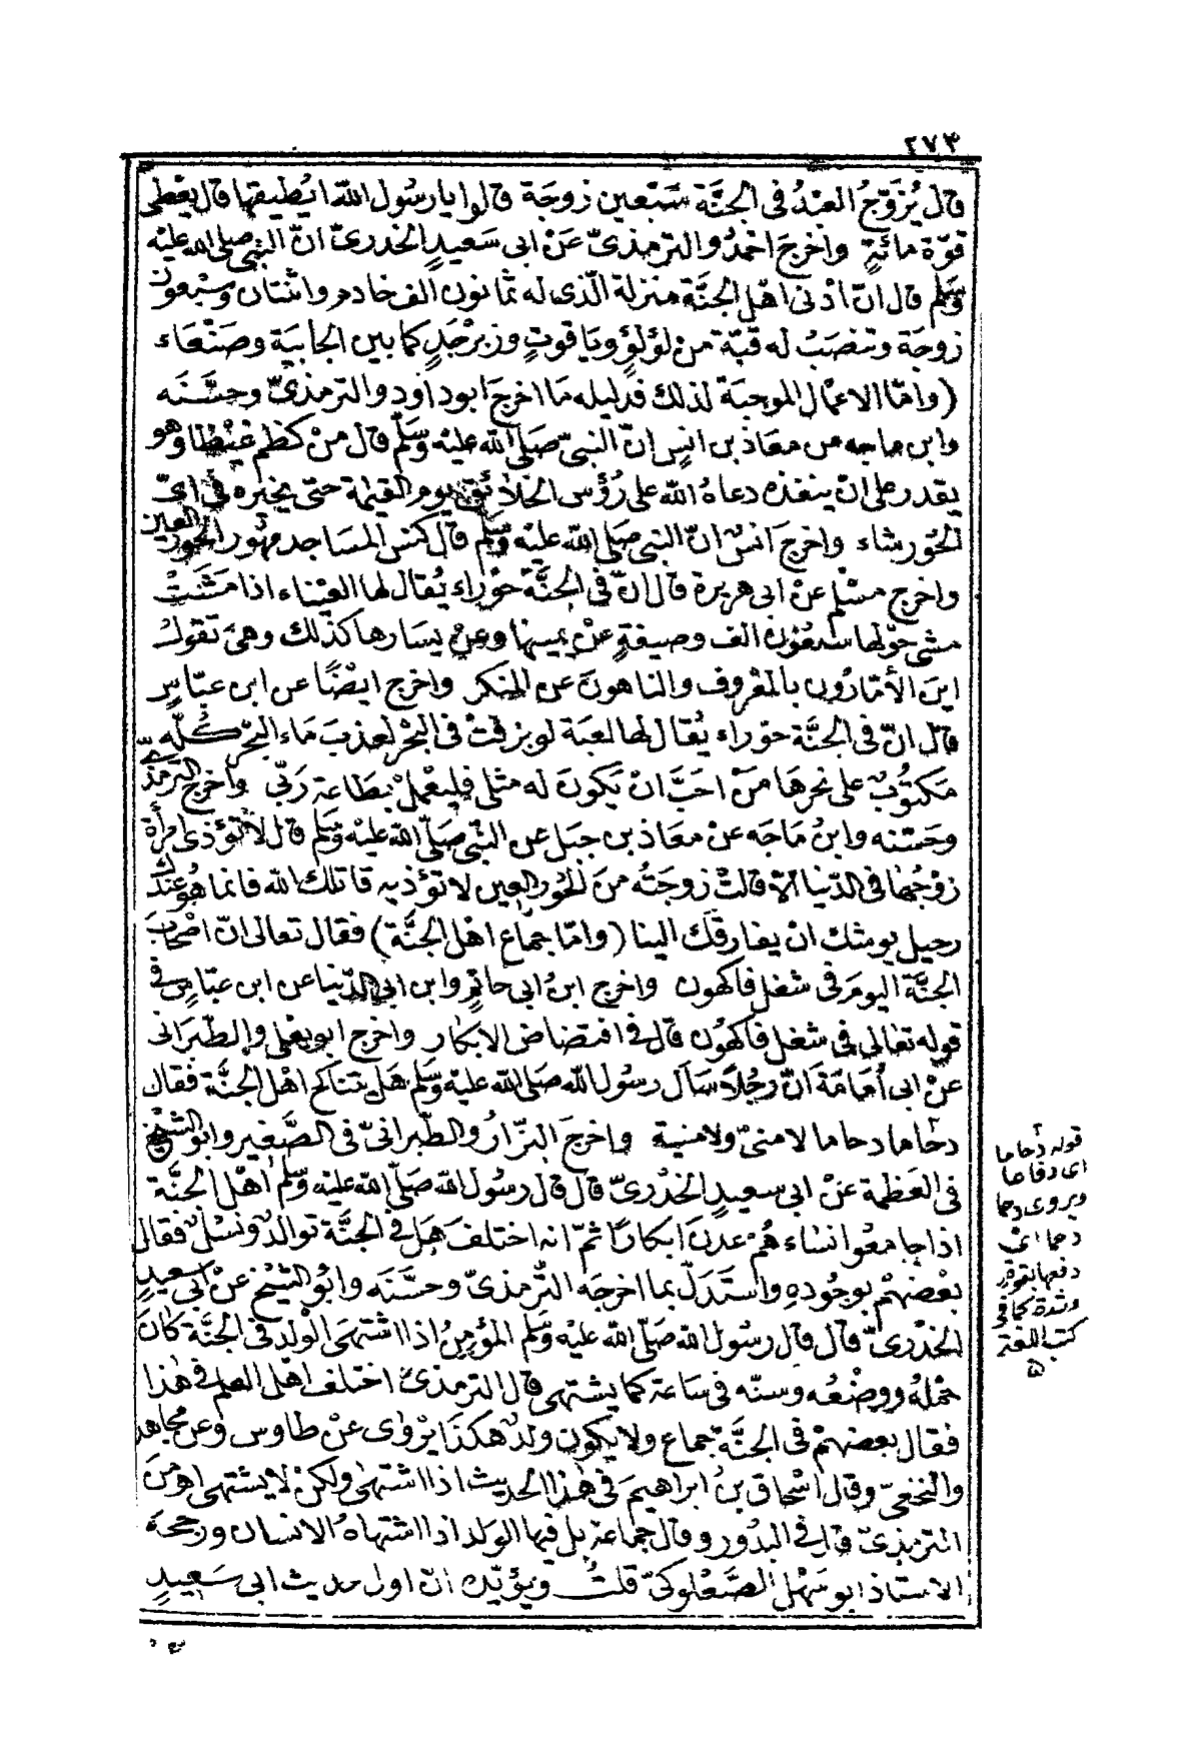 ٢٧٣
قال يُزوّجُ العَبْدُ فى الجنَّة سَبْعين زوجَة قالوا يا رسُول اللّه ايُطيقها قال يعْطى
قوّة مائةٍ واخرجَ احْمدُ والترمذىّ عَنْ ابى سَعيدٍ الخدرىّ انّ النبىّ صلى الله عليْه
وسَلم قال انّ ادْنى اهْل الجنَّة منزلة الّذى له ثمانون الف خادم واثنتان وسبْعون
زوجَة وتنصَبُ له قبّة من لؤلؤٍ وياقوتٍ وزبرْجَدٍ كما بين الجابيَة وصَنْعَاء
(وامّا الاعْمال الموجبَة لذلك فدليله مَا اخرجَ ابو داود والترمذىّ وحسَّنَه
وابن ماجه من معَاذ بن انسٍ انّ النبىّ صَلى اللّه عليْه وَسَلّم قال منْ كظم غيْظا وهو
يقدر على انْ ينفذه دعاهُ اللّه على رُؤس الخلائق يوم القيٰمة حتّى يخيره فى اىّ
الحُور شاء واخرجَ انسٌ انّ النبىّ صَلى اللّه عليْه وَسَلّم قال كنس المسَاجد مهُور الحُور العين
واخرج مسْلم عنْ ابى هريرة قال انّ فى الجنَّة حوْراء يُقال لها العيْناء اذا مَشَتْ
مشى حوْلها سَبْعُون الف وصيفةٍ عنْ يمينها وعنْ يسَارها كذلك وهىَ تقولُ
اينَ الأمّارُون بالمعْروف والناهونَ عن المنكر واخرج ايْضًا عن ابن عبّاسٍ
قال انّ فى الجنَّة حوْراء يُقال لها لعبَة لو بزقتْ فى البحْر لعذبَ مَاء البحْر كُلّه
مَكتوُبٌ على نحرهَا مَنْ احَبَّ انْ يَكونَ له مثلى فليعْملْ بطَاعة رَبّى واخرج الترمذىّ
وحَسّنه وابنُ مَاجَه عنْ معَاذ بن جبَل عن النّبى صَلّى اللّه عليْه وَسَلّم قال لا تؤذى امرأة
زوْجُها فى الدّنيا الاّ قالتْ زوجَتُه منَ الحُور العين لا تؤذيه قاتلك الله فانما هُو عنْدك
رحيل يومئك انْ يفارقَك الينا (وامّا جماع اهْل الجنَّة) فقال تعالى انّ اصْحابَ
الجنَّة اليومَ فى شغلٍ فاكهون واخرج ابنُ ابى حاتمٍ وابن ابى الدّنيا عن ابن عبّاس فى
قوله تعَالى فى شغل فاكهُون قال فى افتضاض الابكار واخرج ابو يعْلى والطّبرانى
عنْ ابى اُمَامَةَ انّ رجُلاً سَأل رسُول الله صَلى اللّه عليْه وَسَلّم هَلْ يتناكح اهْل الجنَّة فقال
دحاما دحاما لا منىّ ولا منية واخرجَ البزّارُ والطّبرانىّ فى الصَّغير وابو الشيْخ
فى العَظمة عنْ ابى سعيدٍ الخدْرىّ قال قال رسُول الله صَلّى اللّه عليْه وَسَلّم اهْل الجنَّة
اذا جامعُوا نسَاءهُم عدنَ ابكارًا ثمّ انه اختلفَ هَلْ فى الجنَّة توالدٌ ونسْلٌ فقال
بعْضهُمْ بوجُودهِ واسْتدَلّ بما اخرجَه الترّمذىّ وحسَّنَه وابُو الشيْخ عنْ ابى سعيدٍ
الخدْرىّ قال قال رسُول الله صَلّى الله عليْه وَسَلّم المؤمنُ اذا اشتهَى الولد فى الجنَّة كانَ
حَمْلهُ ووضْعُه وسنّه فى سَاعة كما يشتهى قال الترمذىّ اختلف اهْل العلم فى هٰذا
فقال بعضهمْ فى الجنَّة جماع ولا يكون ولدٌ هكذَا يرْوٰى عنْ طاوس وعن مجاهد
والنخعىّ وقال اسْحاق بنُ ابراهيمَ فى هٰذا الحديث اذا اشتهٰى ولكنْ لا يشتهى اهـ منَ
الترمذىّ قال فى البدُور وقال جماعة بل فيها الولد اذا اشتهاهُ الانسان ورجحَهُ
الاستاذ ابو سَهْل الصَّعْلوكىّ قلتُ ويؤيّده انّ اول حديث ابى سَعيدٍ
قوله دحاما
اى دفاعا
ويروى دحما
دحما اىْ
دفعا بقوة
وشدة كما فى
كتب اللغة